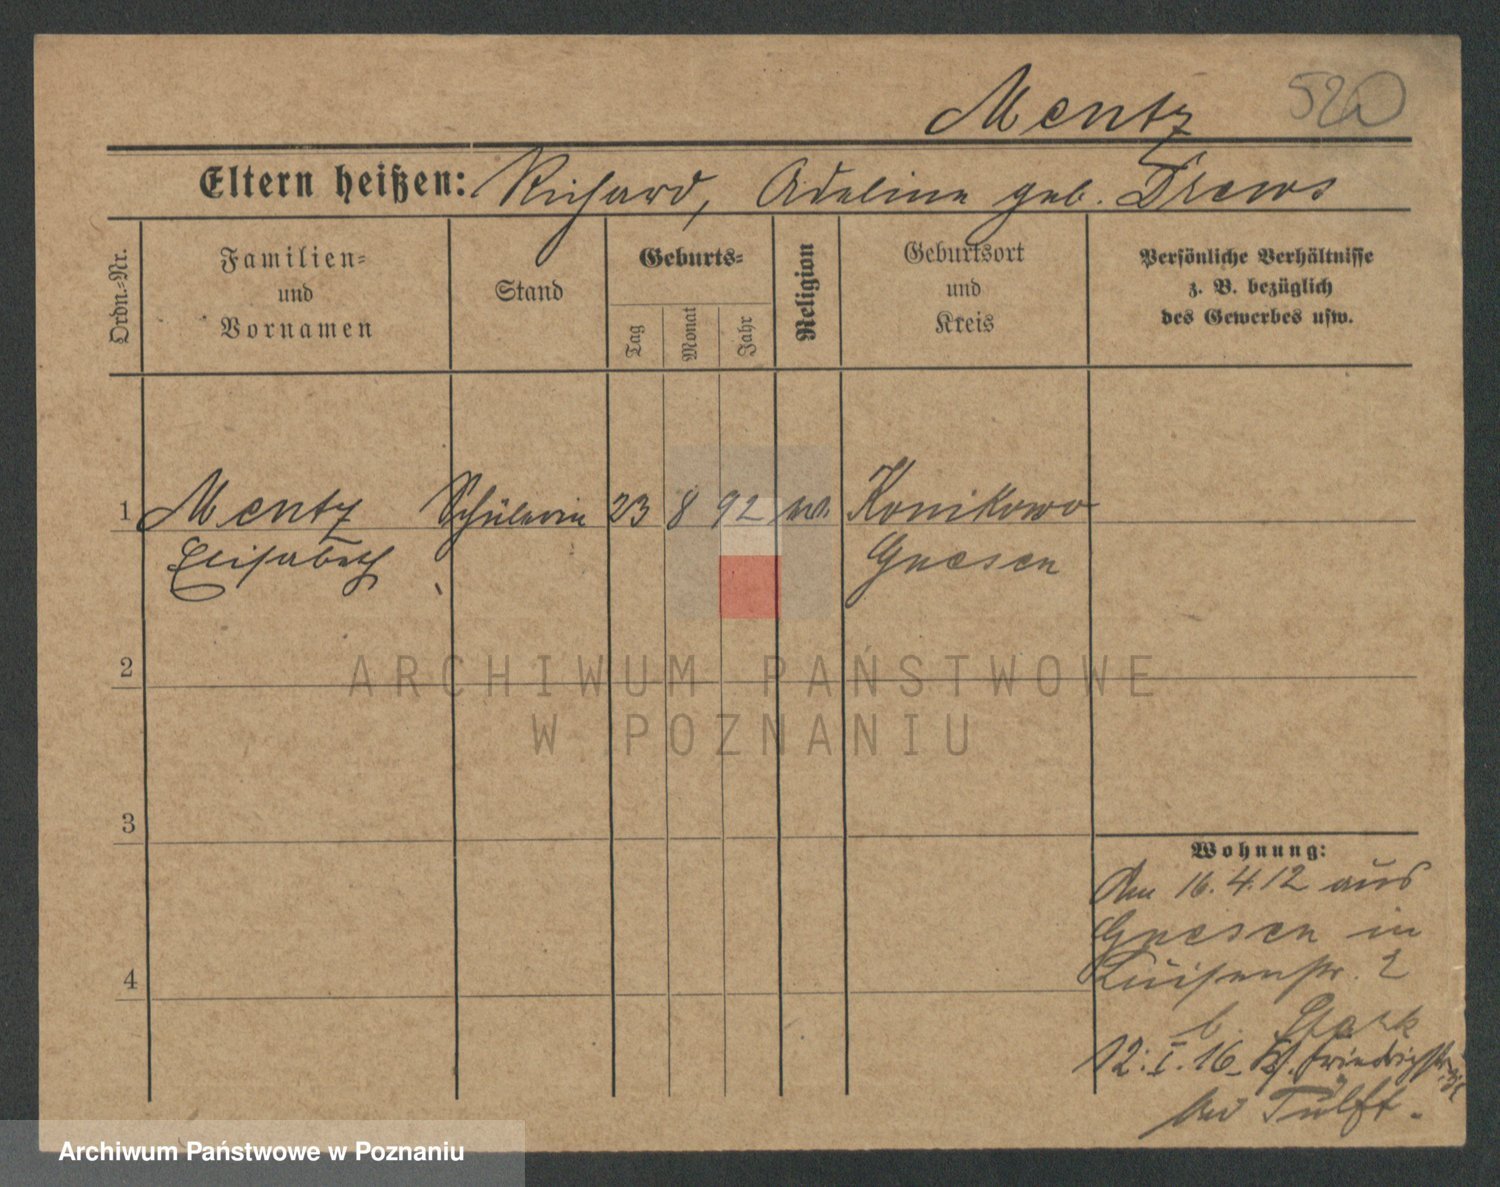 Mentz 520
Eltern heißen: Richard, Adeline geb. Drews
Ordn.-Nr.
Familien-
und
Vornamen
Stand
Geburts-
Tag
Monat
Jahr
Religion
Geburtsort
und
Kreis
Persönliche Verhältnisse
z. B. bezüglich
des Gewerbes usw.
1 Mentz Schülerin 23 8 92 Konikowo
Elisabeth Gnesen
2
3
4
ARCHIWUM PAŃSTWOWE
W POZNANIU
Wohnung:
Am 16.4.12 aus
Gnesen in
Luisenstr. 2
b. Stark
12.I.16 Friedrichstr.
bei
Archiwum Państwowe w Poznaniu